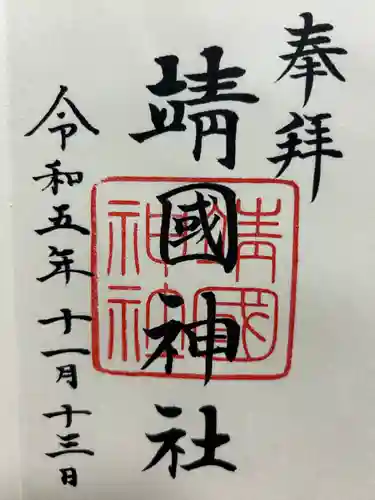 奉拝
靖國神社
靖國神社
令和五年十一月十三日